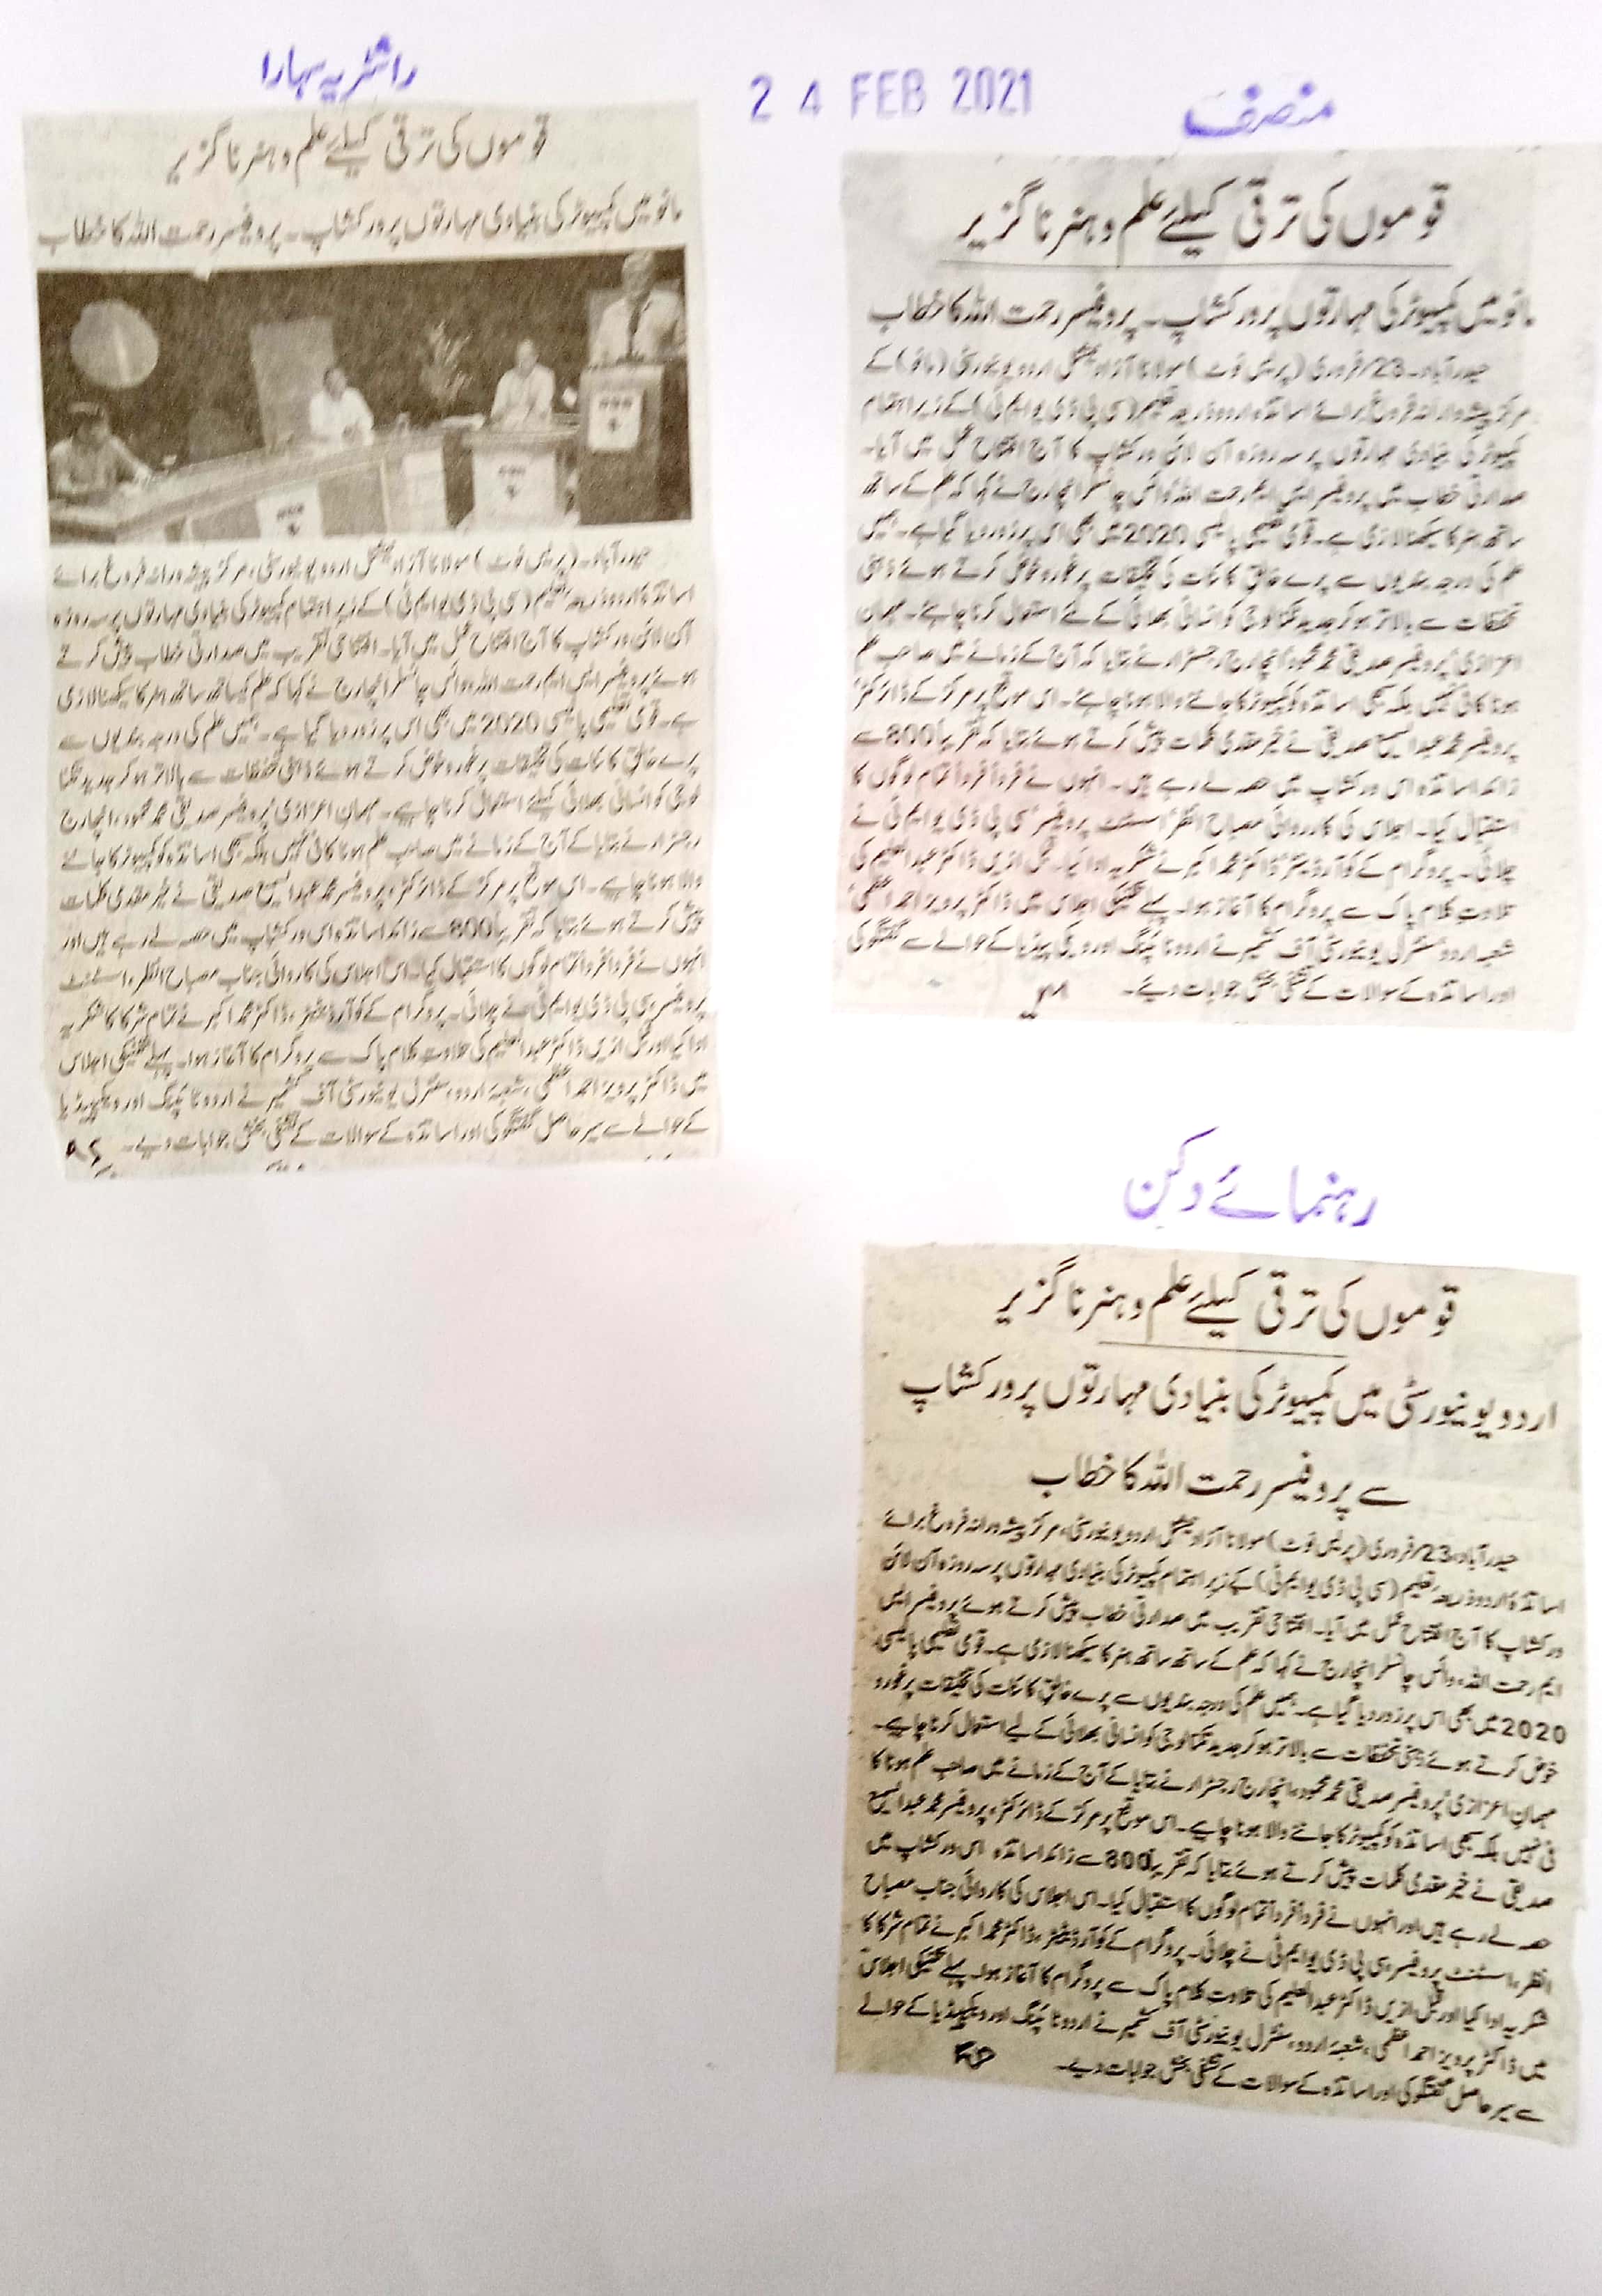 راشٹریہ سہارا
قوموں کی ترقی کیلئے علم و ہنر ناگزیر
مانو میں کمپیوٹر کی بنیادی مہارتوں پر ورکشاپ۔ پروفیسر رحمت اللہ کا خطاب
حیدرآباد۔ (پریس نوٹ) مولانا آزاد نیشنل اردو یونیورسٹی، مرکز پیشہ ورانہ فروغ برائے
اساتذہ اردو ذریعہ تعلیم (سی پی ڈی یو ایم ٹی) کے زیر اہتمام کمپیوٹر کی بنیادی مہارتوں پر سہ روزہ
آن لائن ورکشاپ کا آج افتتاح عمل میں آیا۔ افتتاحی تقریب میں صدارتی خطاب پیش کرتے
ہوئے پروفیسر ایس ایم رحمت اللہ، وائس چانسلر انچارج نے کہا کہ علم کیساتھ ساتھ ہنر کا سیکھنا لازمی
ہے۔ قومی تعلیمی پالیسی 2020 میں بھی اس پر زور دیا گیا ہے۔ ہمیں علم کی درجہ بندیوں سے
پرے خالق کائنات کی تخلیقات پر غور و خوض کرتے ہوئے ذہنی تحفظات سے بالاتر ہو کر جدید ٹکنا
لوجی کو انسانی بھلائی کیلئے استعمال کرنا چاہیے۔ مہمان اعزازی پروفیسر صدیقی محمد محمود، انچارج
رجسٹرار نے بتایا کے آج کے زمانے میں صاحب علم ہونا کافی نہیں بلکہ سبھی اساتذہ کو کمپیوٹر کا جاننے
والا ہونا چاہیے۔ اس موقع پر مرکز کے ڈائرکٹر، پروفیسر محمد عبدالسمیع صدیقی نے خیر مقدمی کلمات
پیش کرتے ہوئے بتایا کہ تقریباً 800 سے زائد اساتذہ اس ورکشاپ میں حصہ لے رہے ہیں اور
انہوں نے فرداً فرداً تمام لوگوں کا استقبال کیا۔ اس اجلاس کی کاروائی جناب مصباح انظر، اسسٹنٹ
پروفیسر، سی پی ڈی یو ایم ٹی نے چلائی۔ پروگرام کے کوآرڈینیٹر، ڈاکٹر محمد اکبر نے تمام شرکا کا شکریہ
ادا کیا اور قبل ازیں ڈاکٹر عبدالعلیم کی تلاوت کلام پاک سے پروگرام کا آغاز ہوا۔ پہلے تکنیکی اجلاس
میں ڈاکٹر پرویز احمد اعظمی، شعبہ اردو، سنٹرل یونیورسٹی آف کشمیر نے اردو ٹائپنگ اور ویکیپیڈیا
کے حوالے سے سیر حاصل گفتگو کی اور اساتذہ کے سوالات کے تشفی بخش جوابات دیے۔
24 FEB 2021
منصف
قوموں کی ترقی کیلئے علم و ہنر ناگزیر
مانو میں کمپیوٹر کی مہارتوں پر ورکشاپ۔ پروفیسر رحمت اللہ کا خطاب
حیدرآباد۔ 23/فروری (پریس نوٹ) مولانا آزاد نیشنل اردو یونیورسٹی (مانو) کے
مرکز پیشہ ورانہ فروغ برائے اساتذہ اردو ذریعہ تعلیم (سی پی ڈی یو ایم ٹی) کے زیر اہتمام
کمپیوٹر کی بنیادی مہارتوں پر سہ روزہ آن لائن ورکشاپ کا آج افتتاح عمل میں آیا۔
صدارتی خطاب میں پروفیسر ایس ایم رحمت اللہ وائس چانسلر انچارج نے کہا کہ علم کے ساتھ
ساتھ ہنر کا سیکھنا لازمی ہے۔ قومی تعلیمی پالیسی 2020 میں بھی اس پر زور دیا گیا ہے۔ ہمیں
علم کی درجہ بندیوں سے پرے خالق کائنات کی تخلیقات پر غور و خوض کرتے ہوئے ذہنی
تحفظات سے بالاتر ہو کر جدید ٹکنالوجی کو انسانی بھلائی کے لئے استعمال کرنا چاہئے۔ مہمان
اعزازی پروفیسر صدیقی محمد محمود انچارج رجسٹرار نے بتایا کہ آج کے زمانے میں صاحب علم
ہونا کافی نہیں بلکہ سبھی اساتذہ کو کمپیوٹر کا جاننے والا ہونا چاہئے۔ اس موقع پر مرکز کے ڈائرکٹر
پروفیسر محمد عبدالسمیع صدیقی نے خیر مقدمی کلمات پیش کرتے ہوئے بتایا کہ تقریباً 800 سے
زائد اساتذہ اس ورکشاپ میں حصہ لے رہے ہیں۔ انہوں نے فرداً فرداً تمام لوگوں کا
استقبال کیا۔ اجلاس کی کارروائی مصباح انظر اسسٹنٹ پروفیسر سی پی ڈی یو ایم ٹی نے
چلائی۔ پروگرام کے کوآرڈینیٹر ڈاکٹر محمد اکبر نے شکریہ ادا کیا۔ قبل ازیں ڈاکٹر عبدالعلیم کی
تلاوت کلام پاک سے پروگرام کا آغاز ہوا۔ پہلے تکنیکی اجلاس میں ڈاکٹر پرویز احمد اعظمی
شعبہ اردو سنٹرل یونیورسٹی آف کشمیر نے اردو ٹائپنگ اور وی کی پیڈیا کے حوالے سے گفتگو کی
اور اساتذہ کے سوالات کے تشفی بخش جوابات دیئے۔
رہنمائے دکن
قوموں کی ترقی کیلئے علم و ہنر ناگزیر
اردو یونیورسٹی میں کمپیوٹر کی بنیادی مہارتوں پر ورکشاپ
سے پروفیسر رحمت اللہ کا خطاب
حیدرآباد، 23/فروری (پریس نوٹ) مولانا آزاد نیشنل اردو یونیورسٹی، مرکز پیشہ ورانہ فروغ برائے
اساتذہ اردو ذریعہ تعلیم (سی پی ڈی یو ایم ٹی) کے زیر اہتمام کمپیوٹر کی بنیادی مہارتوں پر سہ روزہ آن لائن
ورکشاپ کا آج افتتاح عمل میں آیا۔ افتتاحی تقریب میں صدارتی خطاب پیش کرتے ہوئے پروفیسر ایس
ایم رحمت اللہ، وائس چانسلر انچارج نے کہا کہ علم کے ساتھ ساتھ ہنر کا سیکھنا لازمی ہے۔ قومی تعلیمی پالیسی
2020 میں بھی اس پر زور دیا گیا ہے۔ ہمیں علم کی درجہ بندیوں سے پرے خالق کائنات کی تخلیقات پر غور و
خوض کرتے ہوئے ذہنی تحفظات سے بالاتر ہو کر جدید ٹکنالوجی کو انسانی بھلائی کے لیے استعمال کرنا چاہیے۔
مہمان اعزازی پروفیسر صدیقی محمد محمود، انچارج رجسٹرار نے بتایا کے آج کے زمانے میں صاحب علم ہونا کا
فی نہیں بلکہ سبھی اساتذہ کو کمپیوٹر کا جاننے والا ہونا چاہیے۔ اس موقع پر مرکز کے ڈائرکٹر، پروفیسر محمد عبدالسمیع
صدیقی نے خیر مقدمی کلمات پیش کرتے ہوئے بتایا کہ تقریباً 800 سے زائد اساتذہ اس ورکشاپ میں
حصہ لے رہے ہیں اور انہوں نے فرداً فرداً تمام لوگوں کا استقبال کیا۔ اس اجلاس کی کاروائی جناب مصباح
انظر، اسسٹنٹ پروفیسر، سی پی ڈی یو ایم ٹی نے چلائی۔ پروگرام کے کوآرڈینیٹر، ڈاکٹر محمد اکبر نے تمام شرکا کا
شکریہ ادا کیا اور قبل ازیں ڈاکٹر عبدالعلیم کی تلاوت کلام پاک سے پروگرام کا آغاز ہوا۔ پہلے تکنیکی اجلاس
میں ڈاکٹر پرویز احمد اعظمی، شعبہ اردو، سنٹرل یونیورسٹی آف کشمیر نے اردو ٹائپنگ اور ویکیپیڈیا کے حوالے
سے سیر حاصل گفتگو کی اور اساتذہ کے سوالات کے تشفی بخش جوابات دیے۔